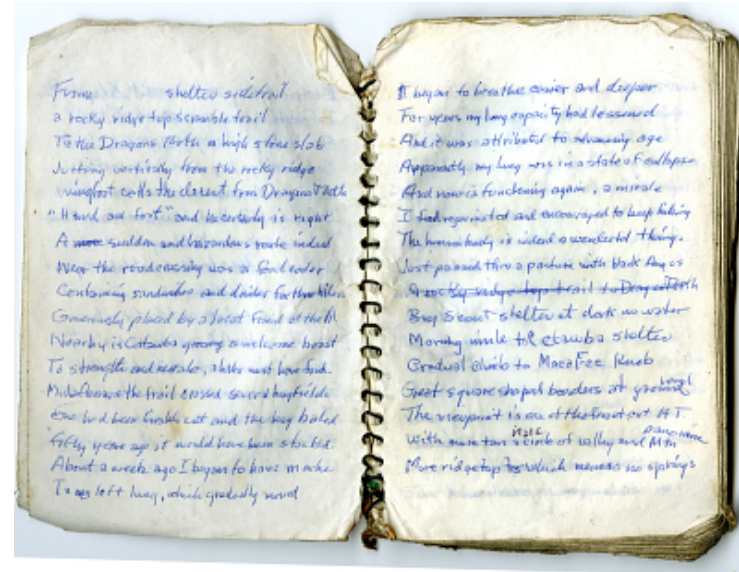 From shelter sidetrail
a rocky ridge top scramble trail
To the Dragons Tooth a high stone slab
Jutting vertically from the rocky ridge
calls the descent from Dragons Tooth
"Hand and foot" and he certainly is right
A sudden and hazardous route indeed
Near the road crossing was a food cooler
Containing sandwiches and drinks for the hikers
Generously placed by a local friend of the
Nearby is Catawba grocery a welcome boost
To strength and morale, a hiker must have food
Mid afternoon the trail crossed several hayfields
One had been freshly cut and the hay baled
Fifty years ago it would have been stacked.
About a week ago I began to have
To my left lung, which gradually
I began to breathe easier and deeper
For years my lung capacity had lessened
And it was attributed to advancing age
Apparently my lung was in a state of collapse
And now is functioning again, a miracle
I had and encouraged to keep hiking
The human body is indeed a wonderful thing.
Just passed thru a pasture with black Angus
A rocky ridge top trail to Dragon Tooth
Boy Scout shelter at dark no water
Morning hike to Catawba shelter
Gradual climb to MacaFee Knob
Great square shaped boulders at ground level
The viewpoint is one of the finest on A.T.
With more than circle of valley and Mtn panorama
More ridgetop which means no springs